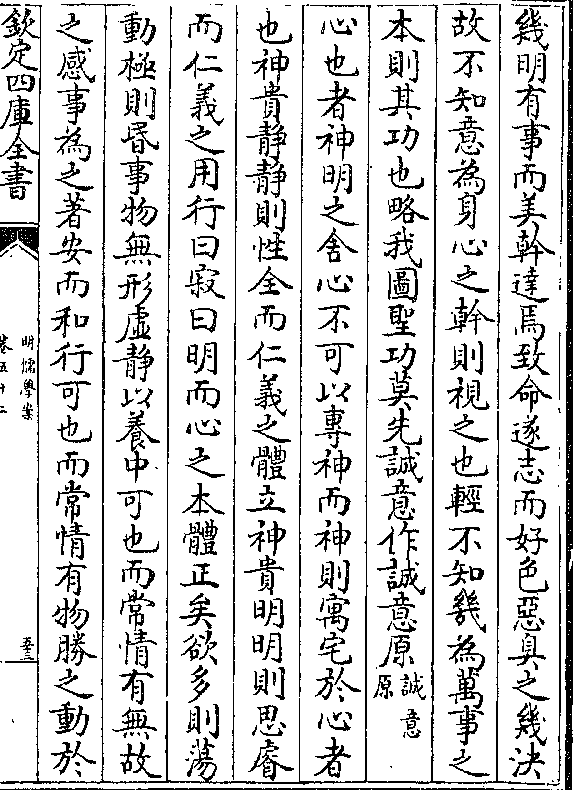 幾明有事而美幹達焉致命遂志而好色惡臭之幾決
故不知意為身心之幹則視之也輕不知幾為萬事之
本則其功也略我圖聖功莫先誠意作誠意原誠意原
心也者神明之舍心不可以專神而神則寓宅於心者
也神貴静静則性全而仁義之體立神貴明明則思睿
而仁義之用行曰寂曰明而心之本體正矣欲多則蕩
動極則昏事物無形虚静以養中可也而常情有無故
之感事為之著安而和行可也而常情有物勝之動於
欽定四庫全書
明儒學案
卷五十二